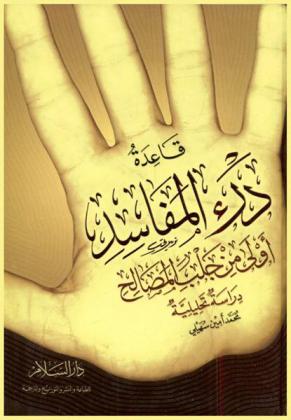 قَاعِدَةُ
دَرْءِ المَفَاسِدِ
أَوْلَى مِنْ جَلْبِ المَصَالِحِ
دِرَاسَةٌ تَحْلِيلِيَّةٌ
محمد أمين سهيلي
دار السلام
للطباعة والنشر والتوزيع والترجمة